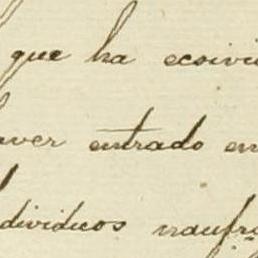 que ha ecsivi
aver entrado en
dividuos naufr